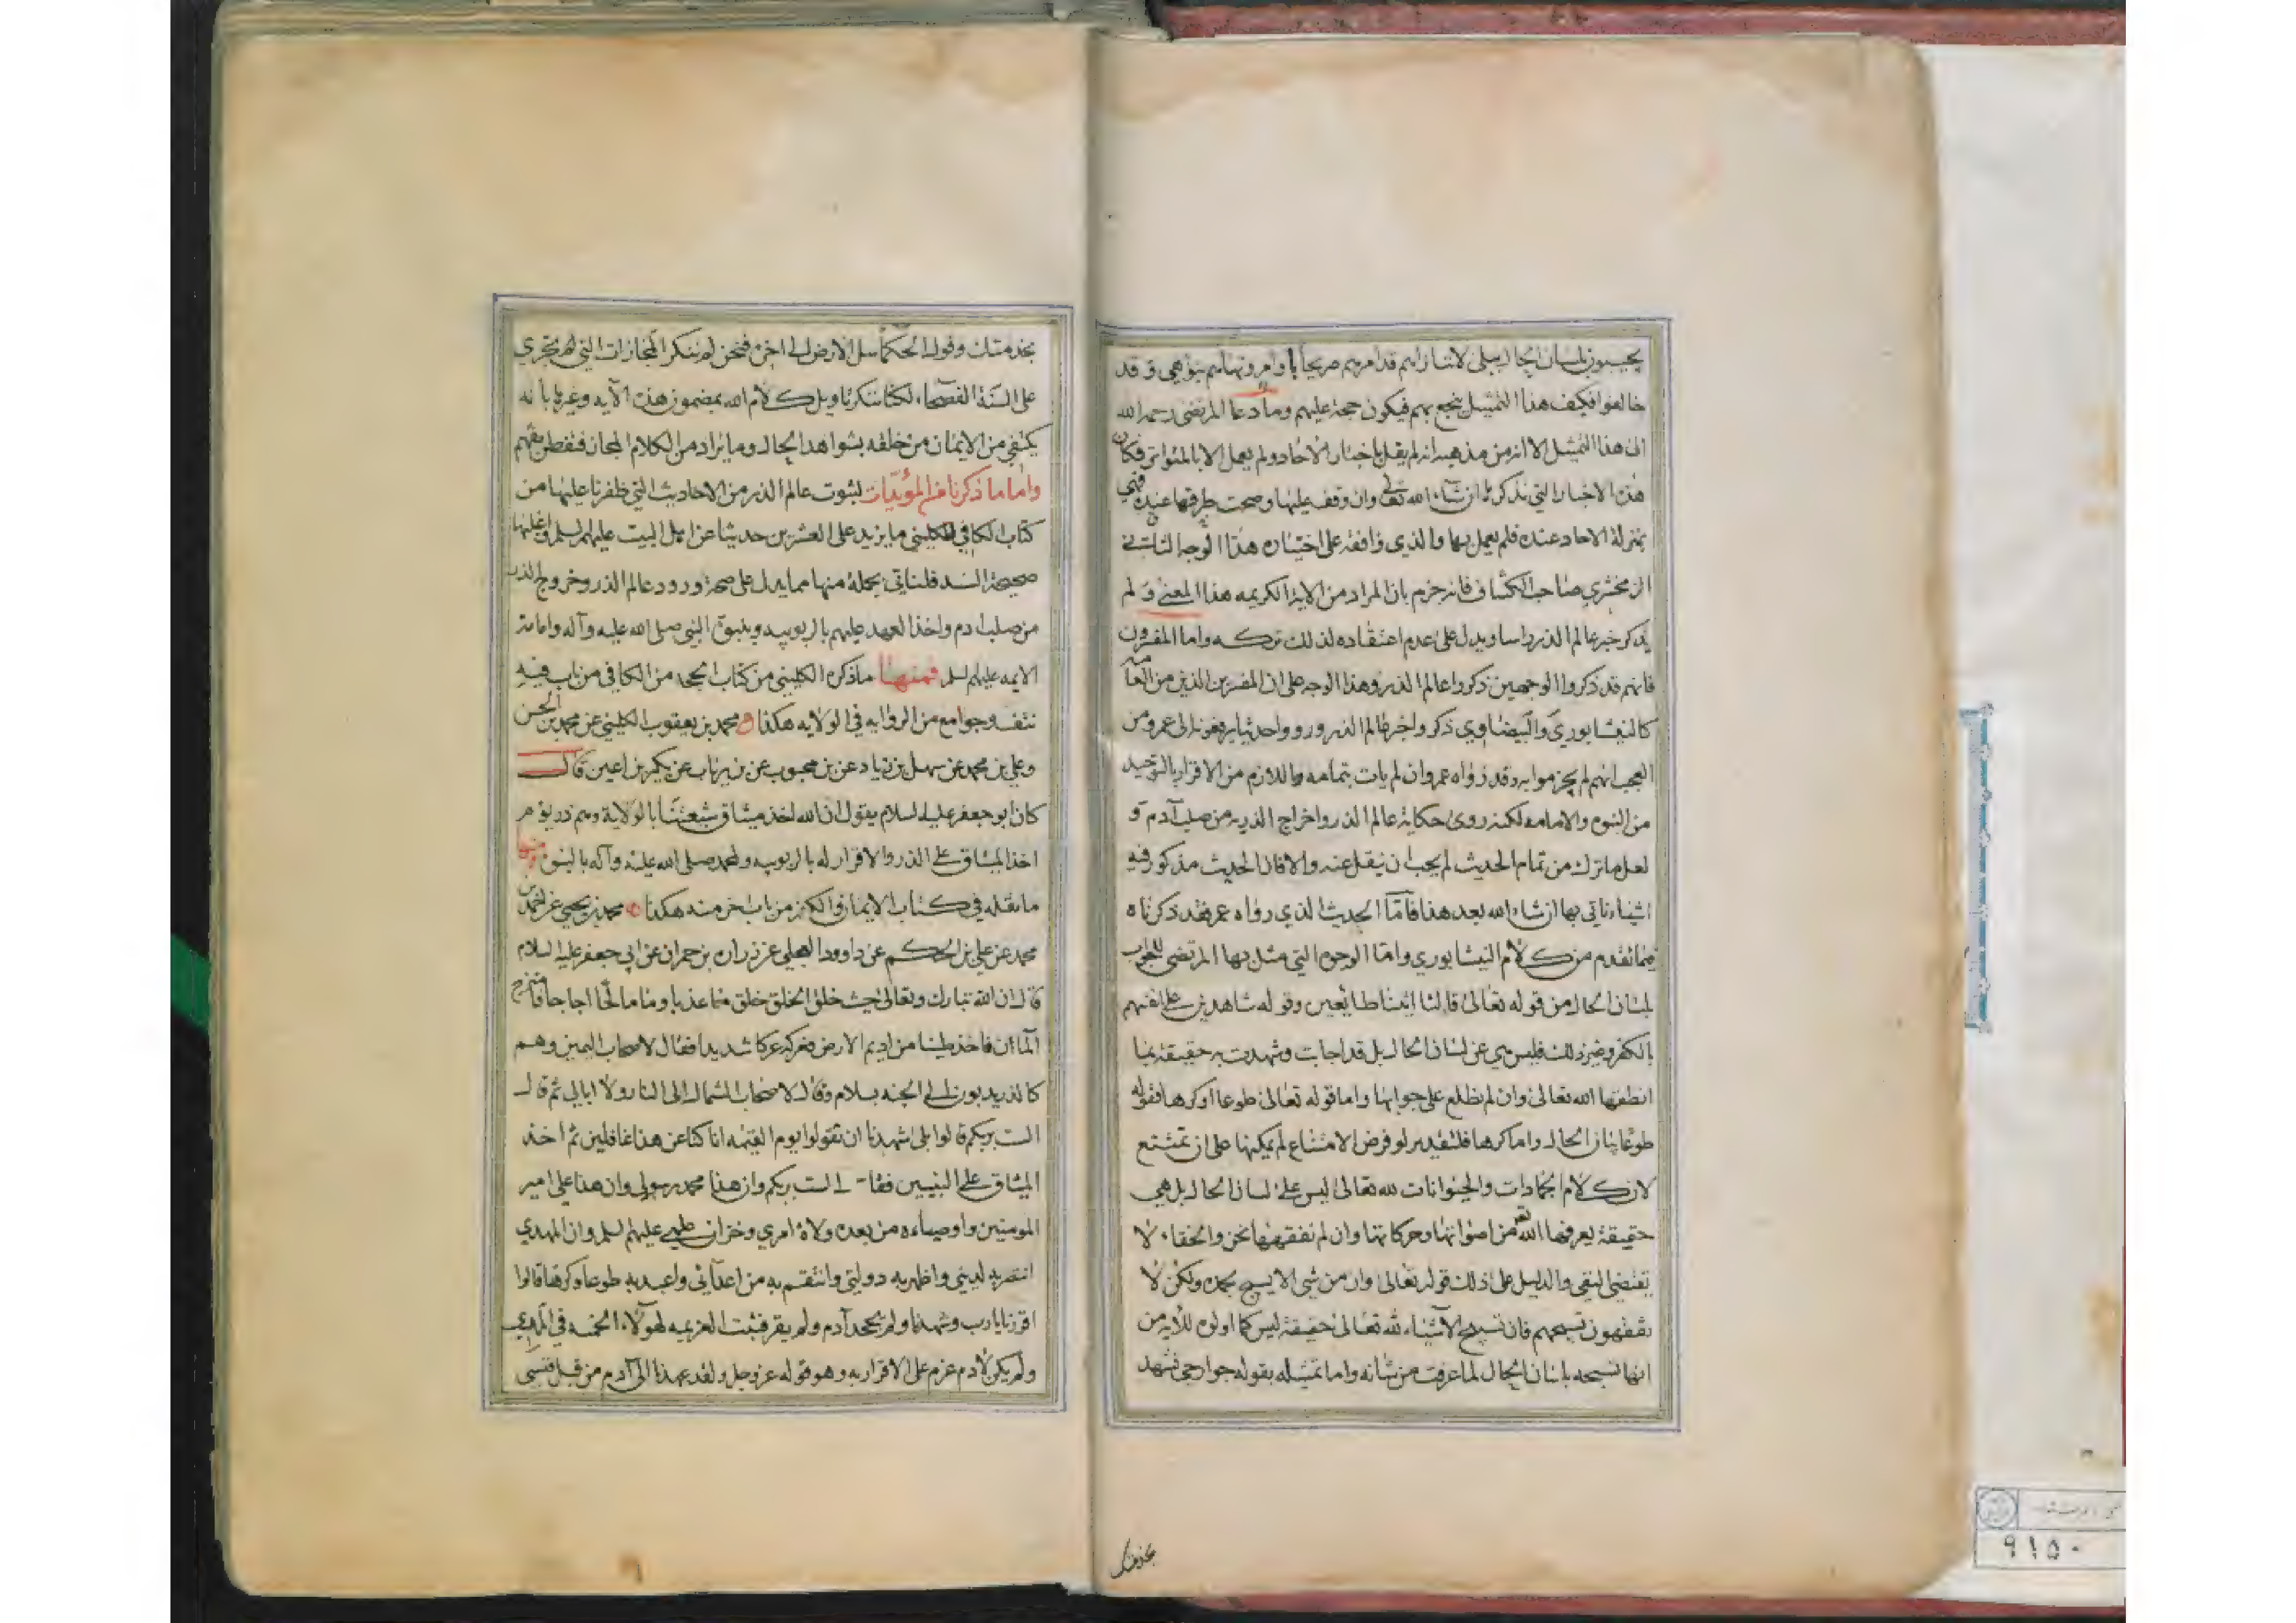 يجيبون بلسان الحال ببلى لانتا زاهم قد امرهم صريحا باوامر ونهاهم بنواهي و قد
خالفوا فكيف هذا التمثيل ينجع بهم فيكون حجة عليهم وما دعا المرتضى رحمه الله
الى هذا التمثيل الا انه من مذهبه انه لم يقل باخبار الاحاد ولم يعمل الا بالمتواتر فكان
هذه الاخبار التي نذكرها ان شاء الله تعالى وان وقف عليها وصحت طرقها عنده فهي
بمنزلة الاحاد عنده فلم يعمل بها والذي وافقه على اختياره هذا الوجه الثاني
الزمخشري صاحب الكشاف فانه جزم بان المراد من الاية الكريمه هذا المعنى و لم
يذكر خبر عالم الذر راسا ويدل على عدم اعتقاده لذلك تركه واما المفسرون
فانهم قد ذكروا الوجهين ذكروا عالم الذر وهذا الوجه على ان المفسرين الذين من العامه
كالنيشابوري والبيضاوي ذكروا خبر عالم الذر ورووا حديثا يرفعونه الى عمر ومن
العجب انهم لم يجزموا به وقد رواه عمر وان لم يات بتمامه واللازم من الاقرار بالتوحيد
من النبوه والامامه لكنه روى حكاية عالم الذر واخراج الذريه من صلب آدم و
لعل ما ترك من تمام الحديث لم يجب ان ينقل عنه والا فان الحديث مذكور فيه
اشياء ناتي بها ان شاء الله بعد هذا فاما الحديث الذي رواه عمر فقد ذكرناه
فيما تقدم من كلام النيشابوري واما الوجوه التي مثل بها المرتضى للجواب
بلسان الحال من قوله تعالى قالتا اتينا طايعين وقوله شاهدين على انفسهم
بالكفر وغير ذلك فليس هي عن لسان الحال بل قد اجابت وشهدت به حقيقة بما
انطقها الله تعالى وان لم نطلع على جوابها واما قوله تعالى طوعا او كرها فقوله
طوعا بيان الحال واما كرها فلتقدير لو فرض الامتناع لم يمكنها على ان تمتنع
لان كلام الجمادات والحيوانات لله تعالى ليس على لسان الحال بل هي
حقيقة يعرفها الله تع من اصواتها وحركاتها وان لم نفقهها نحن والخفاء لا
تقتضي النفي والدليل على ذلك قوله تعالى وان من شي الا يسبح بحمده ولكن لا
تفقهون تسبيحهم فان تسبيح الاشياء لله تعالى حقيقة ليس كما اولوه للايه من
انها تسبحه بلسان الحال لما عرفت من شانه واما تمثيله بقوله جوارحي تشهد
بخدمتك
بخدمتك وقول الحكما سل الارض الى اخره فنحن لم ننكر المجازات التي لم تجري
على السنة الفصحاء لكنا ننكر تاويل كلام الله بمضمون هذه الآيه وغيرها بأنه
يكتفي من الايمان من خلقه بشواهد الحال وما يراد من الكلام المجاز فتفطن تفهم
واما ما ذكرنا من المؤيدات لثبوت عالم الذر من الاحاديث التي ظفرنا عليها من
كتاب الكافي للكليني ما يزيد على العشرين حديثا عن اهل البيت عليهم السلم واغلبها
صحيحة السند فلناتي بجملة منها مما يدل على صحة ورود عالم الذر وخروج الذر
من صلب ادم واخذ العهد عليهم بالربوبيه وبنبوة النبي صلى الله عليه وآله وامامة
الايمه عليهم السلم فمنها ما ذكره الكليني من كتاب الحجه من الكافي من باب فيه
نتف وجوامع من الروايه في الولايه هكذا محمد بن يعقوب الكليني عن محمد بن الحسن
وعلي بن محمد عن سهل بن زياد عن بن محبوب عن بن رئاب عن بكير بن اعين قال
كان ابو جعفر عليه السلام يقول ان الله اخذ ميثاق شيعتنا بالولاية وهم ذر يوم
اخذ الميثاق على الذر والاقرار له بالربوبيه ولمحمد صلى الله عليه وآله بالنبوه ومنها
ما نقله في كتاب الايمان والكفر من باب اخر منه هكذا محمد بن يحيى عن احمد بن
محمد عن علي بن الحكم عن داوود العجلي عن زراره بن حمران عن ابي جعفر عليه السلام
قال ان الله تبارك وتعالى حيث خلق الخلق خلق ماء عذبا وماء مالحا اجاجا فامتزج
الماآن فاخذ طينا من اديم الارض فعركه عركا شديدا فقال لاصحاب اليمين وهم
كالذر يدبون الى الجنه بسلام وقال لاصحاب الشمال الى النار ولا ابالي ثم قال
الست بربكم قالوا بلى شهدنا ان تقولوا يوم القيمه انا كنا عن هذا غافلين ثم اخذ
الميثاق على النبيين فقال الست بربكم وان هذا محمد رسولي وان هذا علي امير
المومنين واوصياءه من بعده ولاة امري وخزان علمي عليهم السلم وان المهدي
انتصر به لديني واظهر به دولتي وانتقم به من اعدائي واعبد به طوعا وكرها قالوا
اقررنا يا رب وشهدنا ولم يجحد آدم ولم يقر فثبت العزيمه لهولاء الخمسه في المهدي
ولم يكن لادم عزم على الاقرار به وهو قوله عز وجل ولقد عهدنا الى آدم من قبل فنسي
٩١٥٠